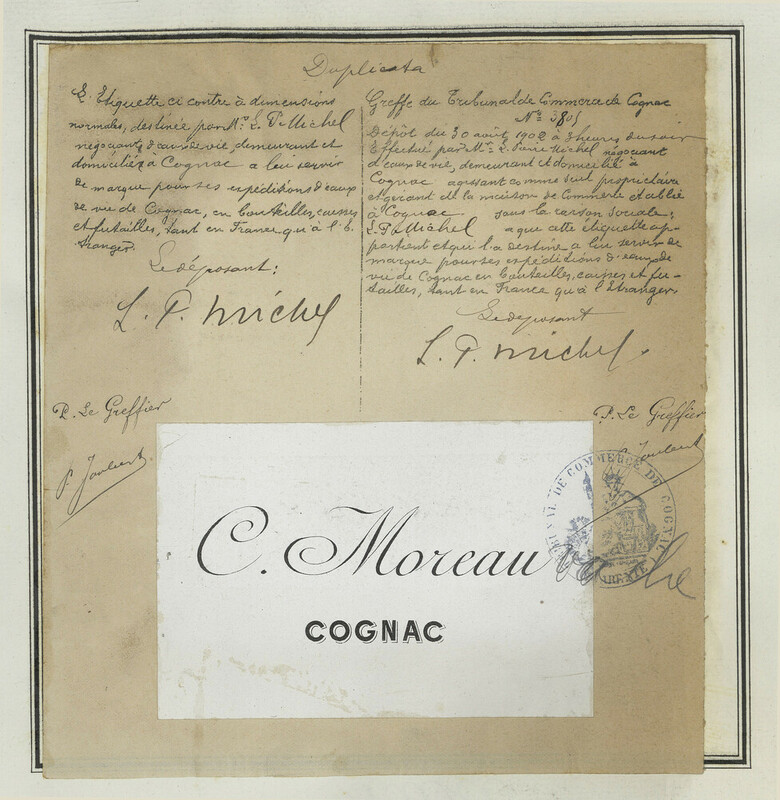 Duplicata
L'Etiquette ci contre à dimensions
normales, destinée par Mr L. P. Michel
négociant d'eaux de vie, demeurant et
domicilié à Cognac a lui servir
de marque pour ses expéditions d'eaux
de vie de Cognac, en bouteilles, caisses
et futailles, tant en France qu'à l'E-
tranger.
Le déposant:
L. P. Michel
P. Le Greffier
P. Joubert
Greffe du Tribunal de Commerce de Cognac
No 3801
Dépôt du 30 août 1902 à 3 heures du soir
Effectué par Mr L. Pierre Michel négociant
d'eaux de vie, demeurant et domicilié à
Cognac agissant comme seul propriétaire
et gérant de la maison de Commerce établie
à Cognac sous la raison sociale:
L. P. Michel a que cette étiquette ap-
partient et qu'il l'a destine a lui servir de
marque pour ses expéditions d'eaux de
vie de Cognac en bouteilles, caisses et fu-
tailles, tant en France qu'à l'Etranger.
Le déposant
L. P. Michel
P. Le Greffier
Joubert
TRIBUNAL DE COMMERCE DE COGNAC
CHARENTE
C. Moreau
COGNAC